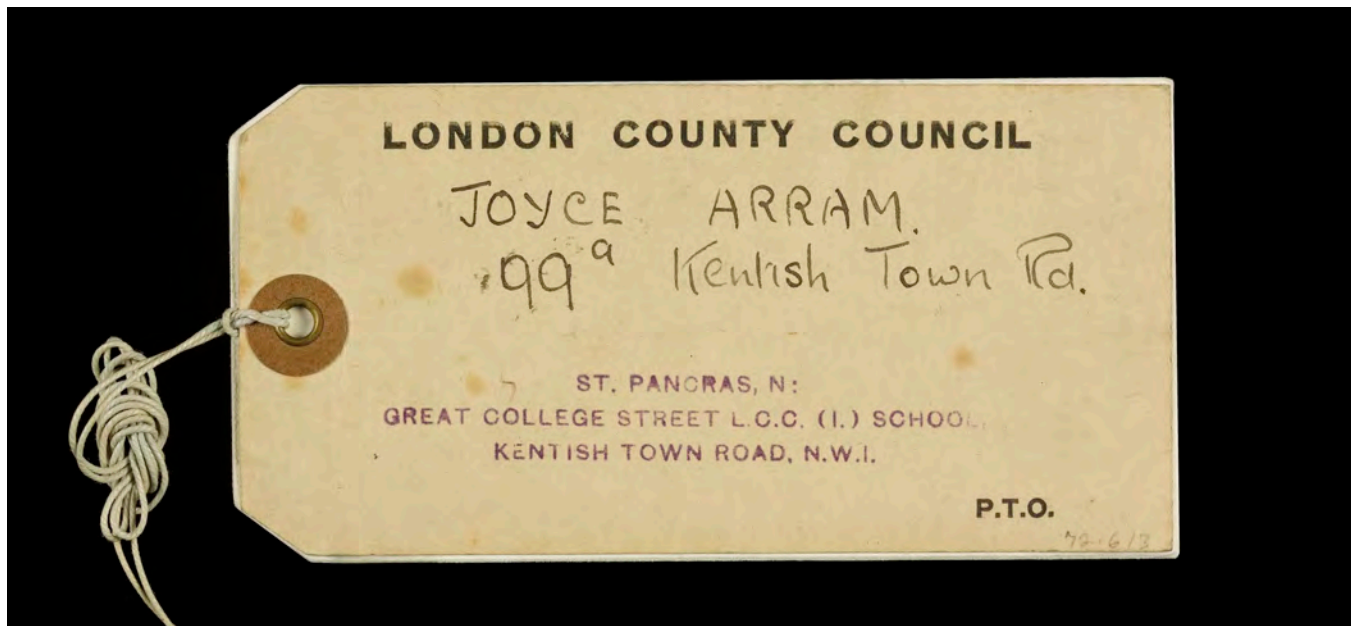 LONDON COUNTY COUNCIL
JOYCE ARRAM.
99a Kentish Town Rd.
ST. PANCRAS, N:
GREAT COLLEGE STREET L.C.C. (I.) SCHOOL,
KENTISH TOWN ROAD, N.W.I.
P.T.O.
72.6/3